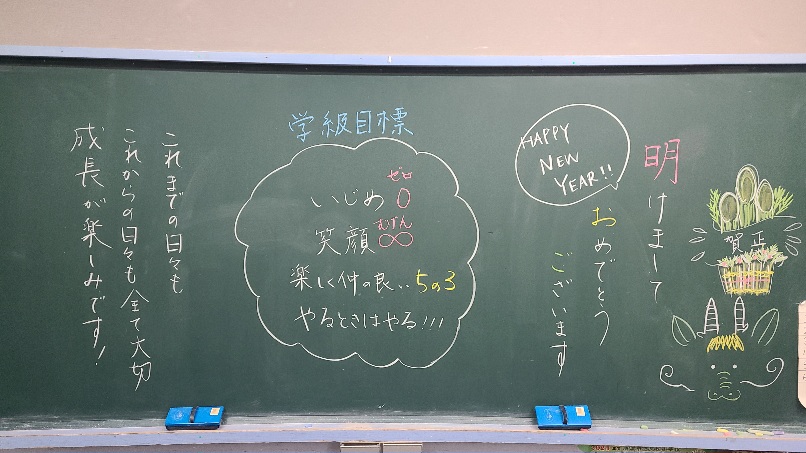 明けまして
おめでとう
ございます
HAPPY
NEW
YEAR!!
賀正
学級目標
ゼロ
いじめ0
むげん
笑顔∞
楽しく仲の良い5の3
やるときはやる!!!
これまでの日々も
これからの日々も全て大切
成長が楽しみです!